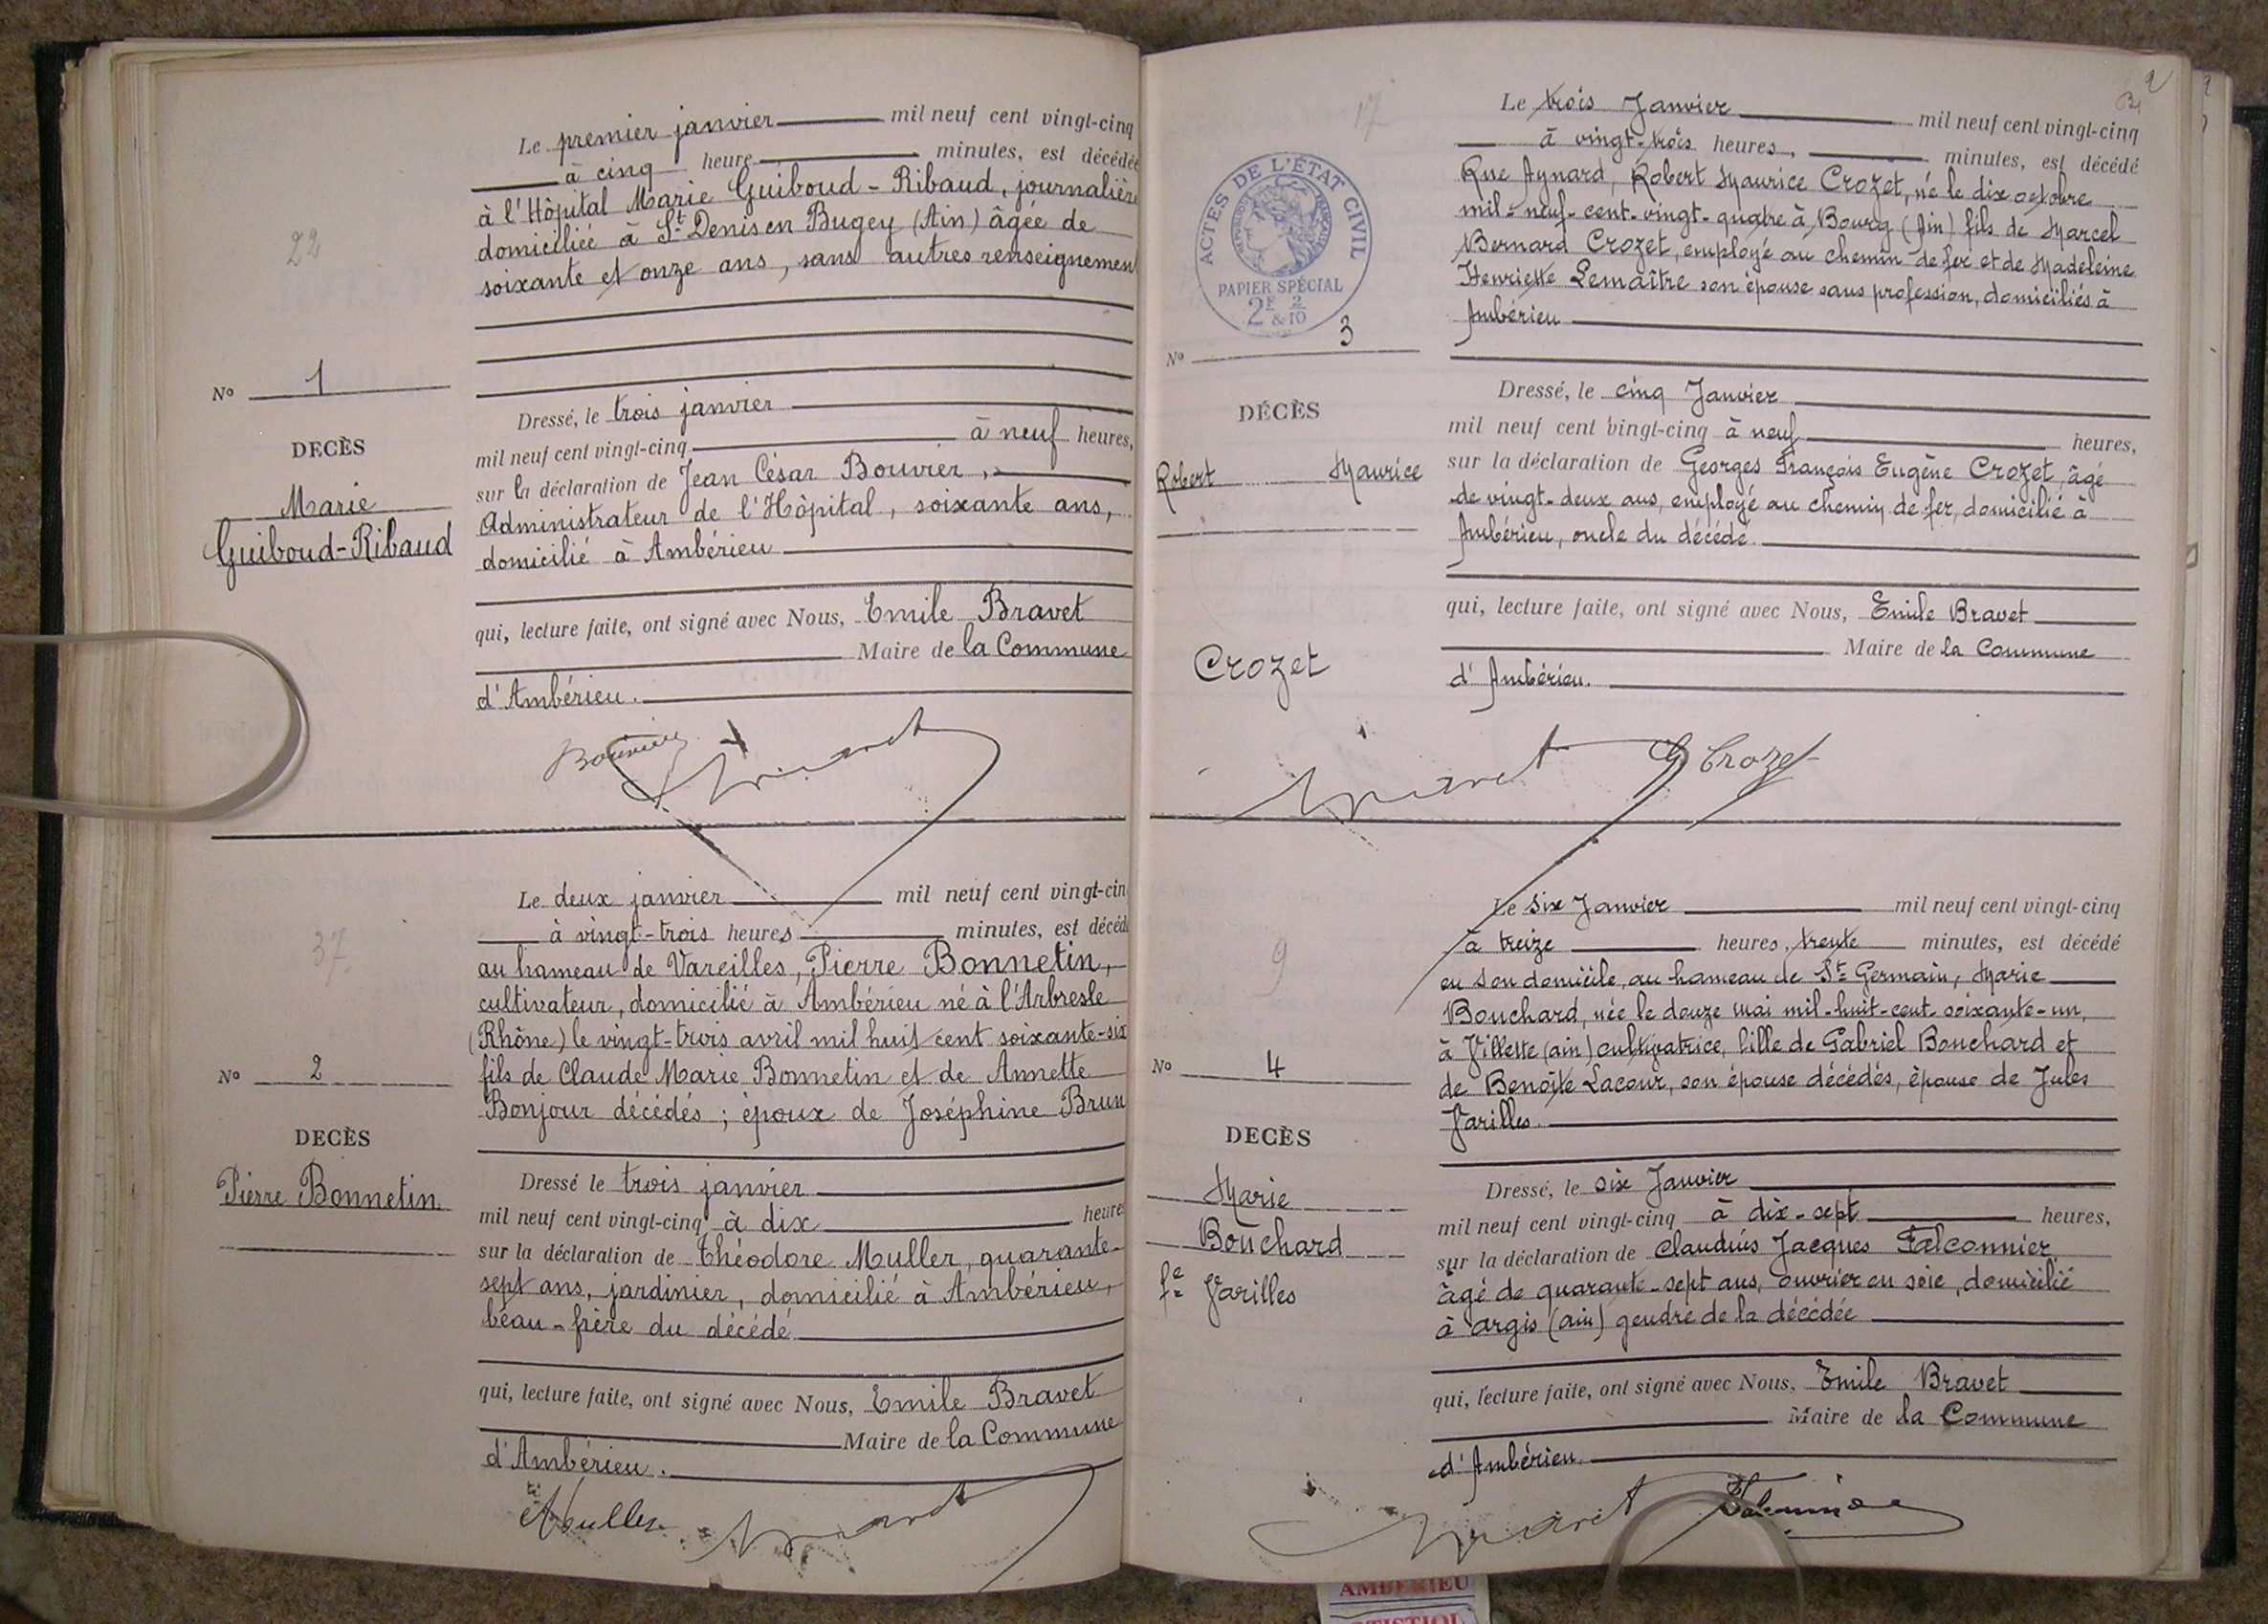 22
Le premier janvier mil neuf cent vingt-cinq
à cinq heure minutes, est décédée
à l'Hôpital Marie Guiboud-Ribaud, journalière
domiciliée à St Denis en Bugey (Ain) âgée de
soixante et onze ans, sans autres renseignemen
No 1
DECÈS
Marie
Guiboud-Ribaud
Dressé, le trois janvier
mil neuf cent vingt-cinq à neuf heures,
sur la déclaration de Jean César Bouvier,
Administrateur de l'Hôpital, soixante ans,
domicilié à Ambérieu
qui, lecture faite, ont signé avec Nous, Emile Bravet
Maire de la Commune
d'Ambérieu.
Bouvier Bravet
37
Le deux janvier mil neuf cent vingt-cin
à vingt-trois heures minutes, est décéd
au hameau de Vareilles, Pierre Bonnetin,
cultivateur, domicilié à Ambérieu né à l'Arbresle
(Rhône) le vingt-trois avril mil huit cent soixante-six
fils de Claude Marie Bonnetin et de Annette
Bonjour décédés ; époux de Joséphine Brun
No 2
DECÈS
Pierre Bonnetin
Dressé le trois janvier
mil neuf cent vingt-cinq à dix heure
sur la déclaration de Théodore Muller, quarante-
sept ans, jardinier, domicilié à Ambérieu,
beau-frère du décédé
qui, lecture faite, ont signé avec Nous, Emile Bravet
Maire de la Commune
d'Ambérieu.
Muller Bravet
2
17
Le trois Janvier mil neuf cent vingt-cinq
à vingt-trois heures, minutes, est décédé
Rue Aynard, Robert Maurice Crozet, né le dix octobre
mil-neuf-cent-vingt-quatre à Bourg (Ain) fils de Marcel
Bernard Crozet, employé au chemin de fer et de Madeleine
Henriette Lemaître son épouse sans profession, domiciliés à
Ambérieu
ACTES DE L'ÉTAT CIVIL
RÉPUBLIQUE FRANÇAISE
PAPIER SPÉCIAL
2E & 2/10
No 3
DÉCÈS
Robert Maurice
Crozet
Dressé, le cinq Janvier
mil neuf cent vingt-cinq à neuf heures,
sur la déclaration de Georges François Eugène Crozet, âgé
de vingt-deux ans, employé au chemin de fer, domicilié à
Ambérieu, oncle du décédé.
qui, lecture faite, ont signé avec Nous, Emile Bravet
Maire de la Commune
d'Ambérieu.
Bravet G Crozet
9
Le six Janvier mil neuf cent vingt-cinq
à treize heures, trente minutes, est décédé
en son domicile, au hameau de St Germain, Marie
Bouchard, née le douze mai mil-huit-cent-soixante-un,
à Villette (ain) cultivatrice, fille de Gabriel Bouchard et
de Benoîte Lacour, son épouse décédés, épouse de Jules
Varilles.
No 4
DECÈS
Marie
Bouchard
fe Varilles
Dressé, le six Janvier
mil neuf cent vingt-cinq à dix-sept heures,
sur la déclaration de Claudius Jacques Falconnier
âgé de quarante-sept ans, ouvrier en soie, domicilié
à argis (ain) gendre de la décédée
qui, lecture faite, ont signé avec Nous, Emile Bravet
Maire de la Commune
d'Ambérieu.
Bravet Falconnier
AMBERIEU